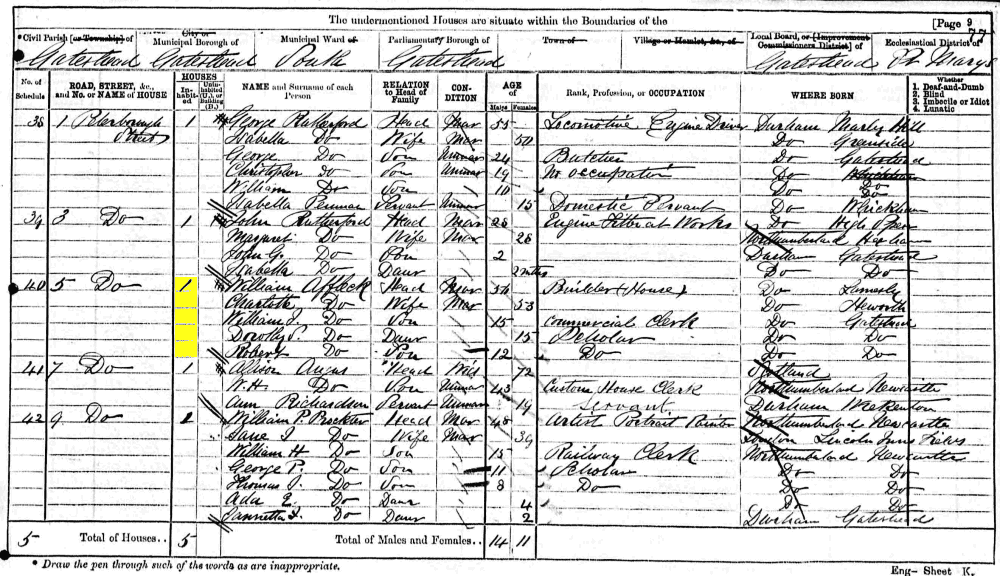 The undermentioned Houses are situate within the Boundaries of the
[Page 9
77
Civil Parish [or Township] of
City or Municipal Borough of
Municipal Ward of
Parliamentary Borough of
Town of
Village or Hamlet, &c., of
Local Board, or [Improvement Commissioners District] of
Ecclesiastical District of
Gateshead Gateshead South Gateshead Gateshead St Marys
No. of Schedule
ROAD, STREET, &c., and No. or NAME of HOUSE
HOUSES
In-habit-ed
Unin-habited (U.), or Building (B.)
NAME and Surname of each Person
RELATION to Head of Family
CON-DITION
AGE of
Males Females
Rank, Profession, or OCCUPATION
WHERE BORN
Whether
1. Deaf-and-Dumb
2. Blind
3. Imbecile or Idiot
4. Lunatic
38 1 Peterborough Street 1 George Rutherford Head Mar 55 Locomotive Engine Driver Durham Marley Hill
Isabella Do Wife Mar 50 Do Greenside
George Do Son Unmar 24 Butcher Do Gateshead
Christopher Do Son Unmar 19 No occupation Do
William Do Son 10 " Do Do
Isabella Servant Unmar 15 Domestic Servant Do Whickham
39 3 Do 1 John Rutherford Head Mar 28 Engine Fitter at Works Do High Spen
Margaret Do Wife Mar 28 Northumberland Hexham
John G. Do Son 2 Durham Gateshead
Isabella Do Daur 2 mths Do Do
40 5 Do 1 William Affleck Head Mar 54 Builder (House) Do Lamesley
Charlotte Do Wife Mar 53 Do Heworth
William J. Do Son 15 Commercial Clerk Do Gateshead
Dorothy J. Do Daur 15 Scholar Do Do
Robert Do Son 12 Do Do Do
41 7 Do 1 Allison Angus Head Wid 72 Scotland
W. H. Do Son Unmar 43 Custom House Clerk Northumberland Newcastle
Ann Richardson Servant Unmar 19 Servant Durham Wreckenton
42 9 Do 1 William P. Head Mar 48 Artist Portrait Painter Northumberland Newcastle
Jane J. Do Wife Mar 39 London Lincoln Inns Fields
William H Do Son 15 Railway Clerk Northumberland Newcastle
George P. Do Son 11 Scholar Do Do
Thomas J. Do Son 8 Do Do Do
Ada E. Do Daur 4 Do Do
Do Daur 2 Durham Gateshead
5 Total of Houses.. 5 Total of Males and Females.. 14 11
* Draw the pen through such of the words as are inappropriate.
Eng- Sheet K.